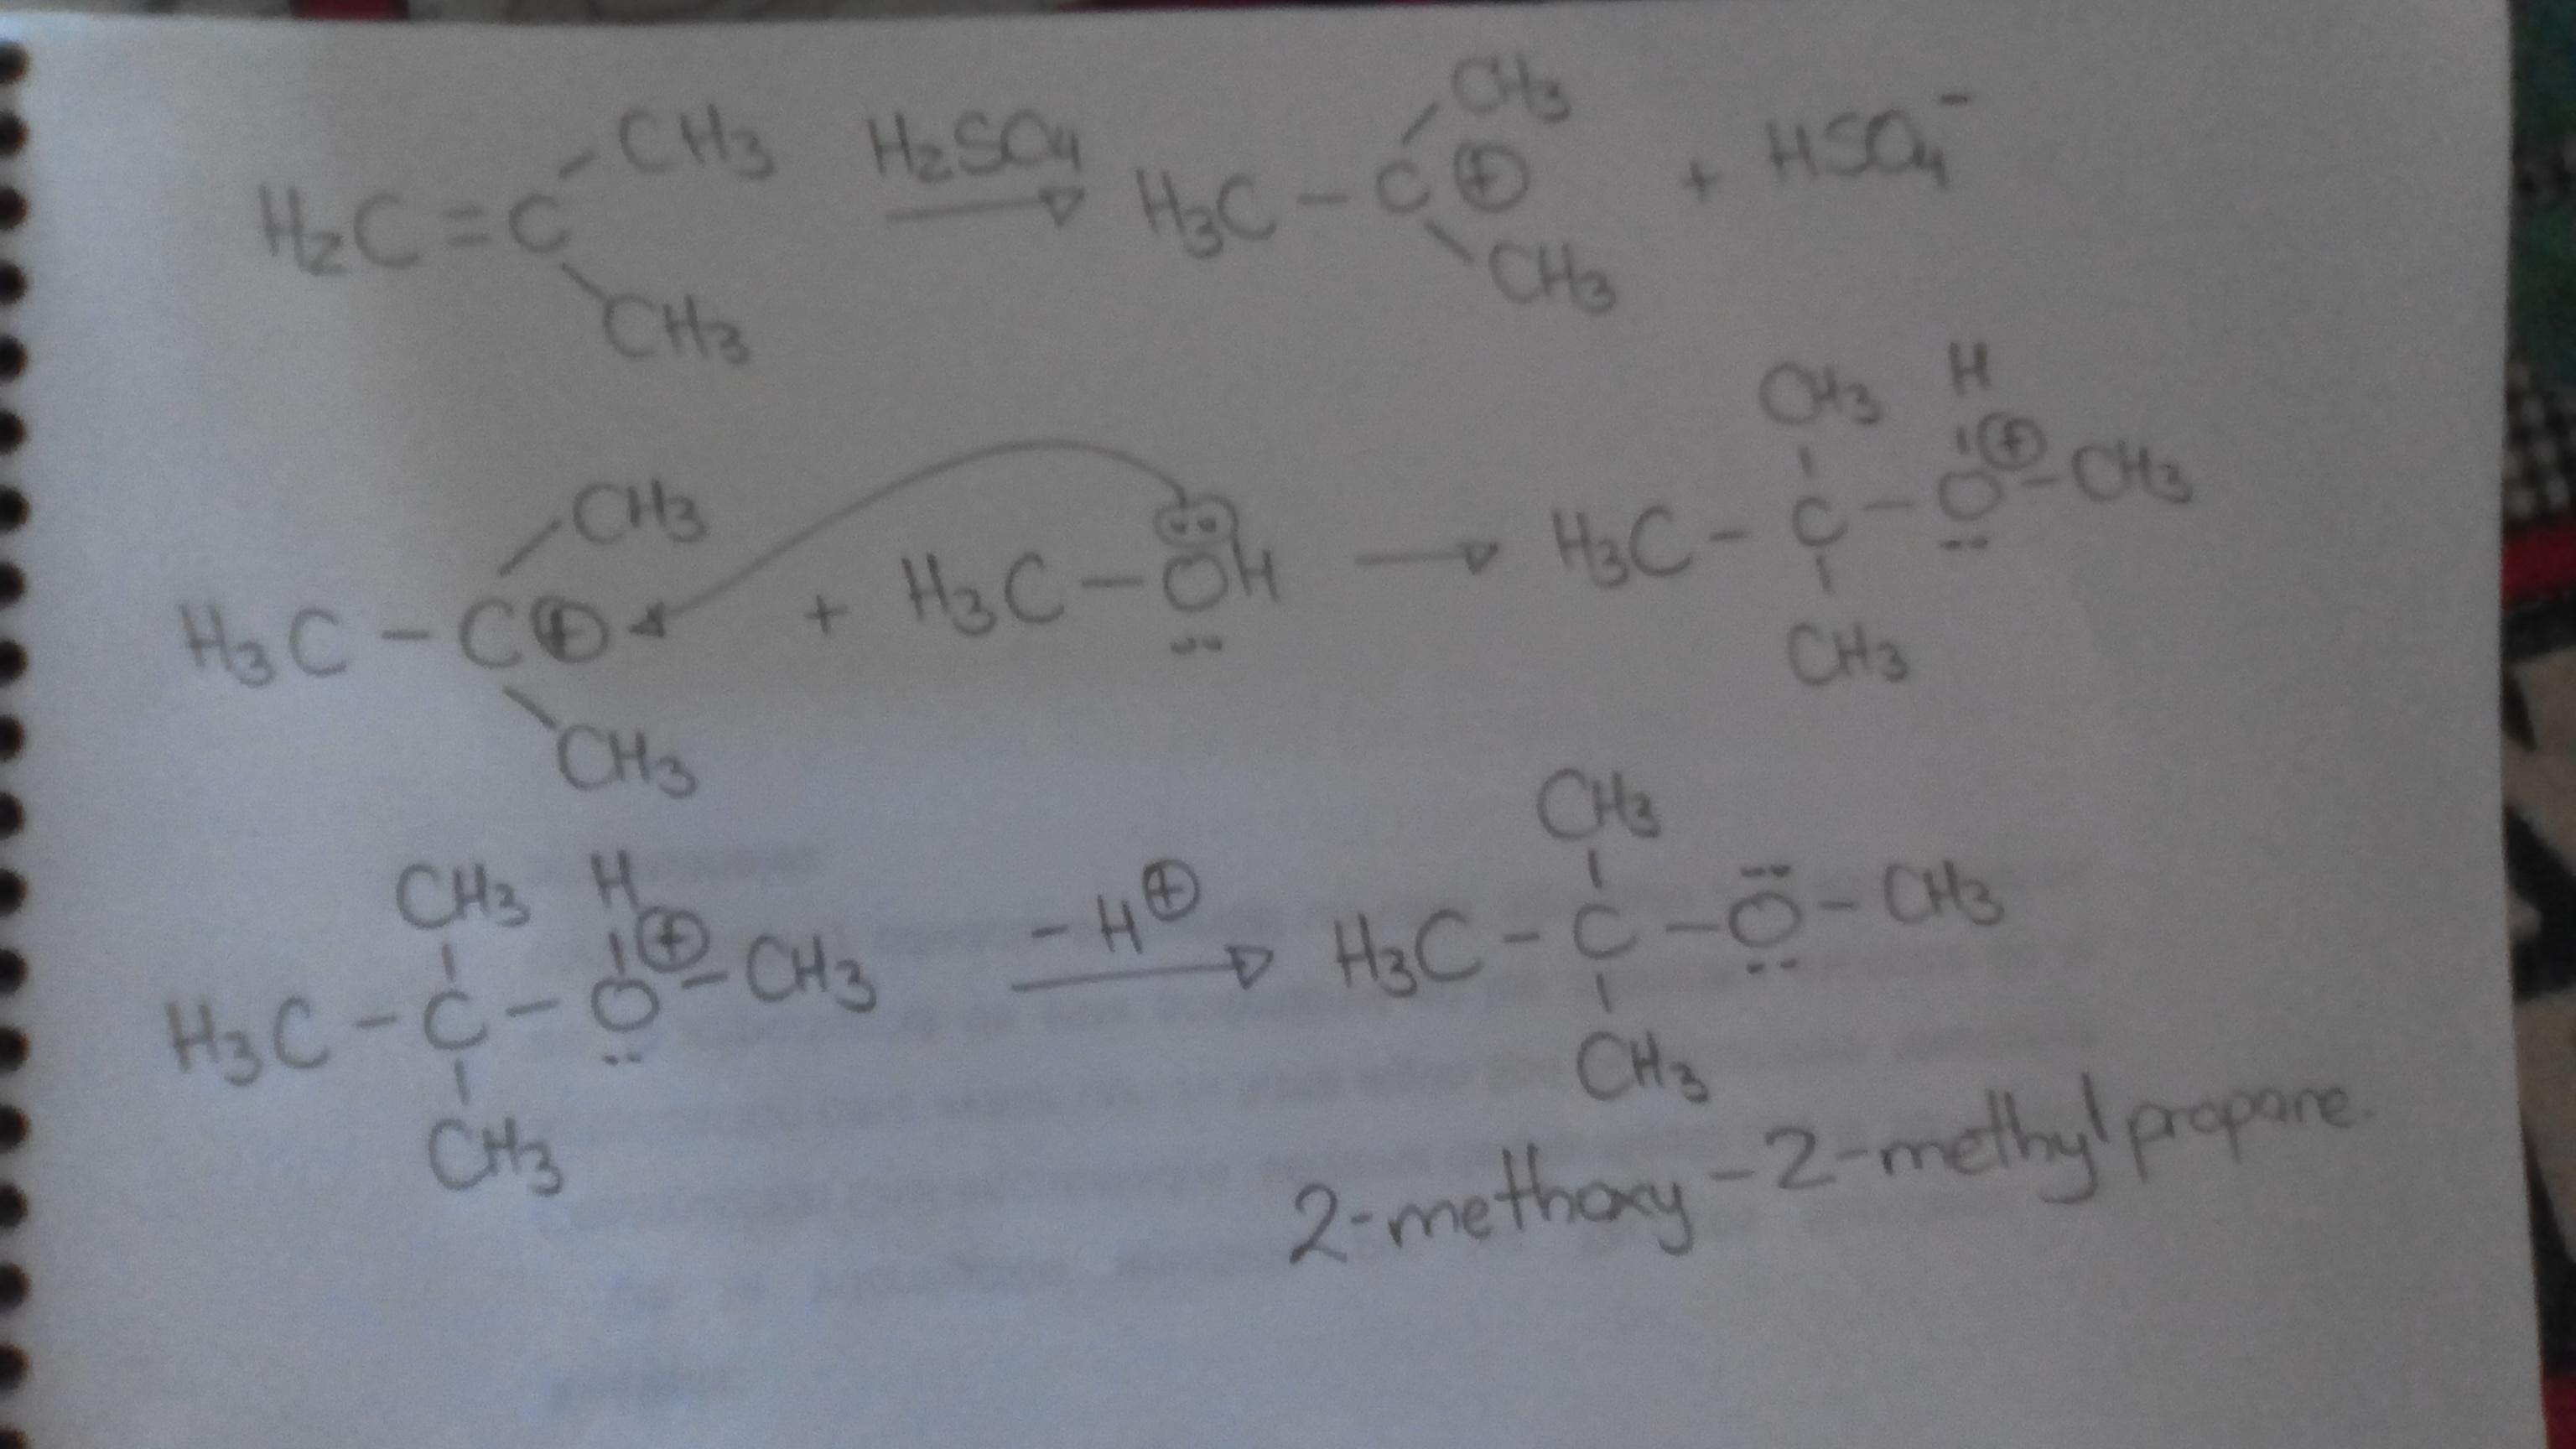 CH3
H2C=C
CH3
H2SO4
H3C-C⊕
CH3
CH3
+ HSO4⁻
H3C-C⊕
CH3
CH3
+ H3C-OH
CH3 H
H3C-C-O⊕-CH3
CH3
CH3 H
H3C-C-O⊕-CH3
CH3
-H⊕
CH3
H3C-C-O-CH3
CH3
2-methoxy-2-methylpropane.